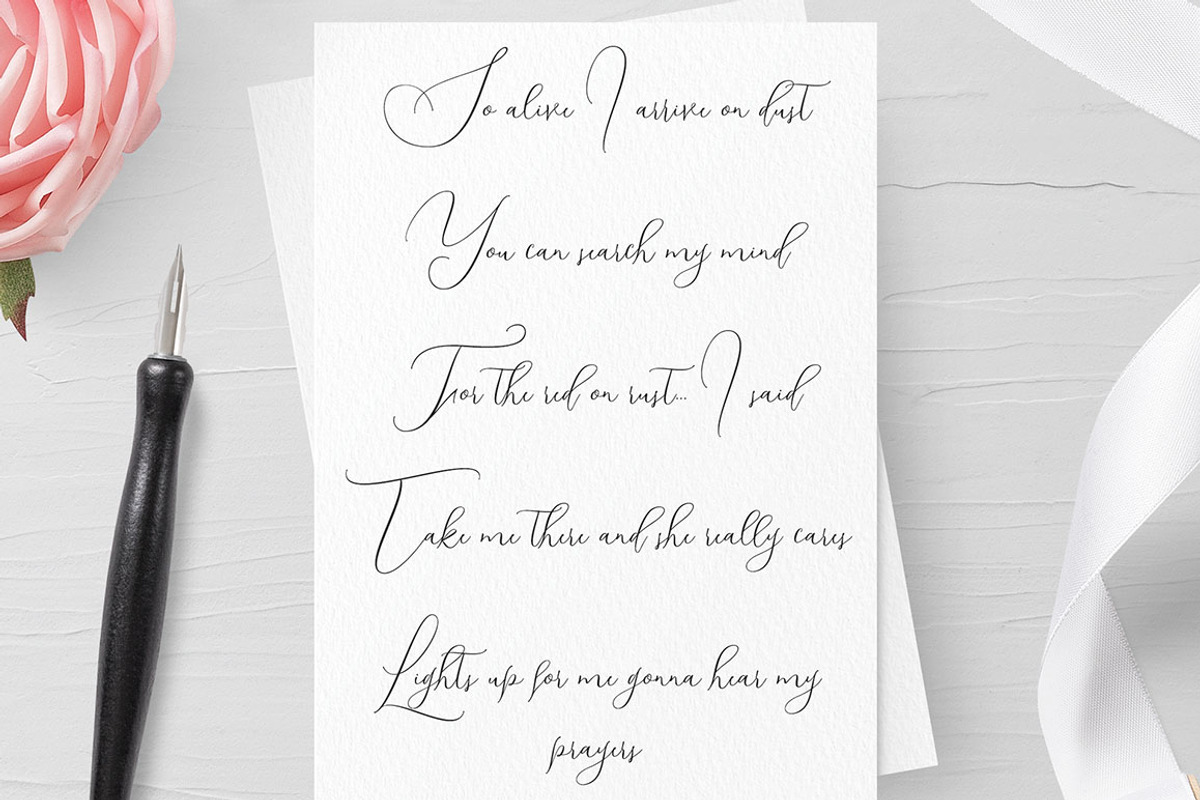 So alive I arrive on dust
You can search my mind
For the red on rust... I said
Take me there and she really cares
Lights up for me gonna hear my
prayers